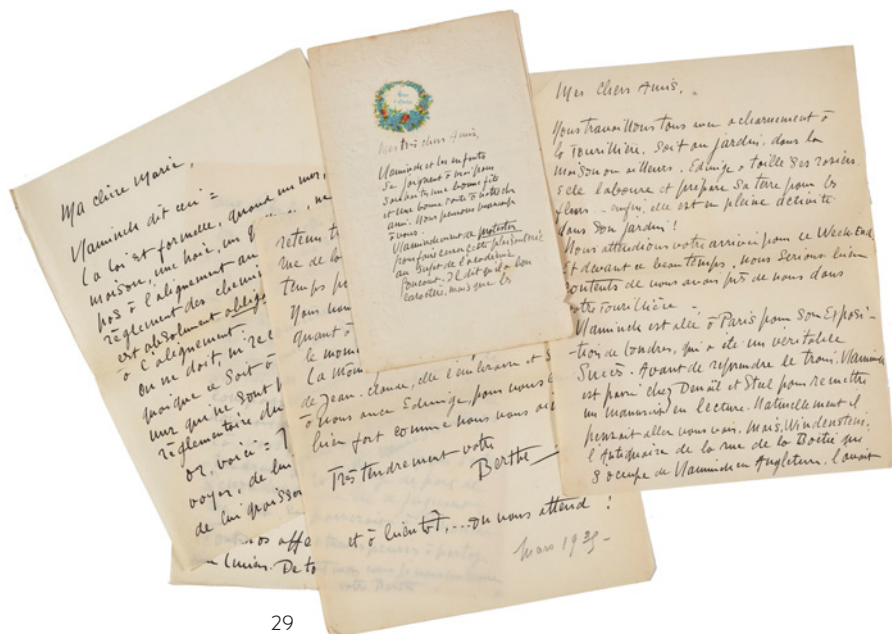 Ma chère Marie,
Vlaminck dit ceci =
La loi est formelle, quand un mur,
maison, une haie, un
pas à l'alignement
règlement des chemins
est absolument oblig
à l'alignement.
on ne doit, ni re
quoique ce soit à
mur qui ne sont p
règlementaire du
or, voici =
voyer, de lui
de lui
nos affe
Lucien. De to
retenu
me de lo
temps p
Vous
quant à
le mom
La Mom
de Jean-Claude, elle t'embrasse et
à vous avec Edwige, pour vous
bien fort comme nous vous
Très tendrement votre
Berthe
et à bientôt, ... on vous attend !
Mars 1935-
Mes très chers Amis,
Vlaminck et les enfants
se joignent à moi pour
souhaiter une bonne fête
et une bonne santé à notre cher
ami. Nous pensons beaucoup
à vous.
Vlaminck vient de protester
pour faire cesser cette plaisanterie
au sujet de l'académie
Goncourt. Il dit qu'il a bon
caractère, mais que les
Mes chers Amis,
Nous travaillons tous avec acharnement à
la Tourillière. Soit au jardin, dans la
maison ou ailleurs. Edwige a taillé ses rosiers
elle laboure et prépare sa terre pour les
fleurs - enfin, elle est en pleine activité
dans son jardin !
Nous attendions votre arrivée pour ce Week-End
Et devant ce beau temps, nous serions bien
contents de vous avoir près de nous dans
votre Tourillière -
Vlaminck est allé à Paris pour son Exposi-
-tion de Londres, qui a été un véritable
Succès. Avant de reprendre le train, Vlaminck
est passé chez Denoël et Stel pour remettre
un manuscrit en lecture. Naturellement il
pensait aller vous voir. Mais, Windenstein,
l'Antiquaire de la rue de la Boëtie qui
s'occupe de Vlaminck en Angleterre, l'avait
29